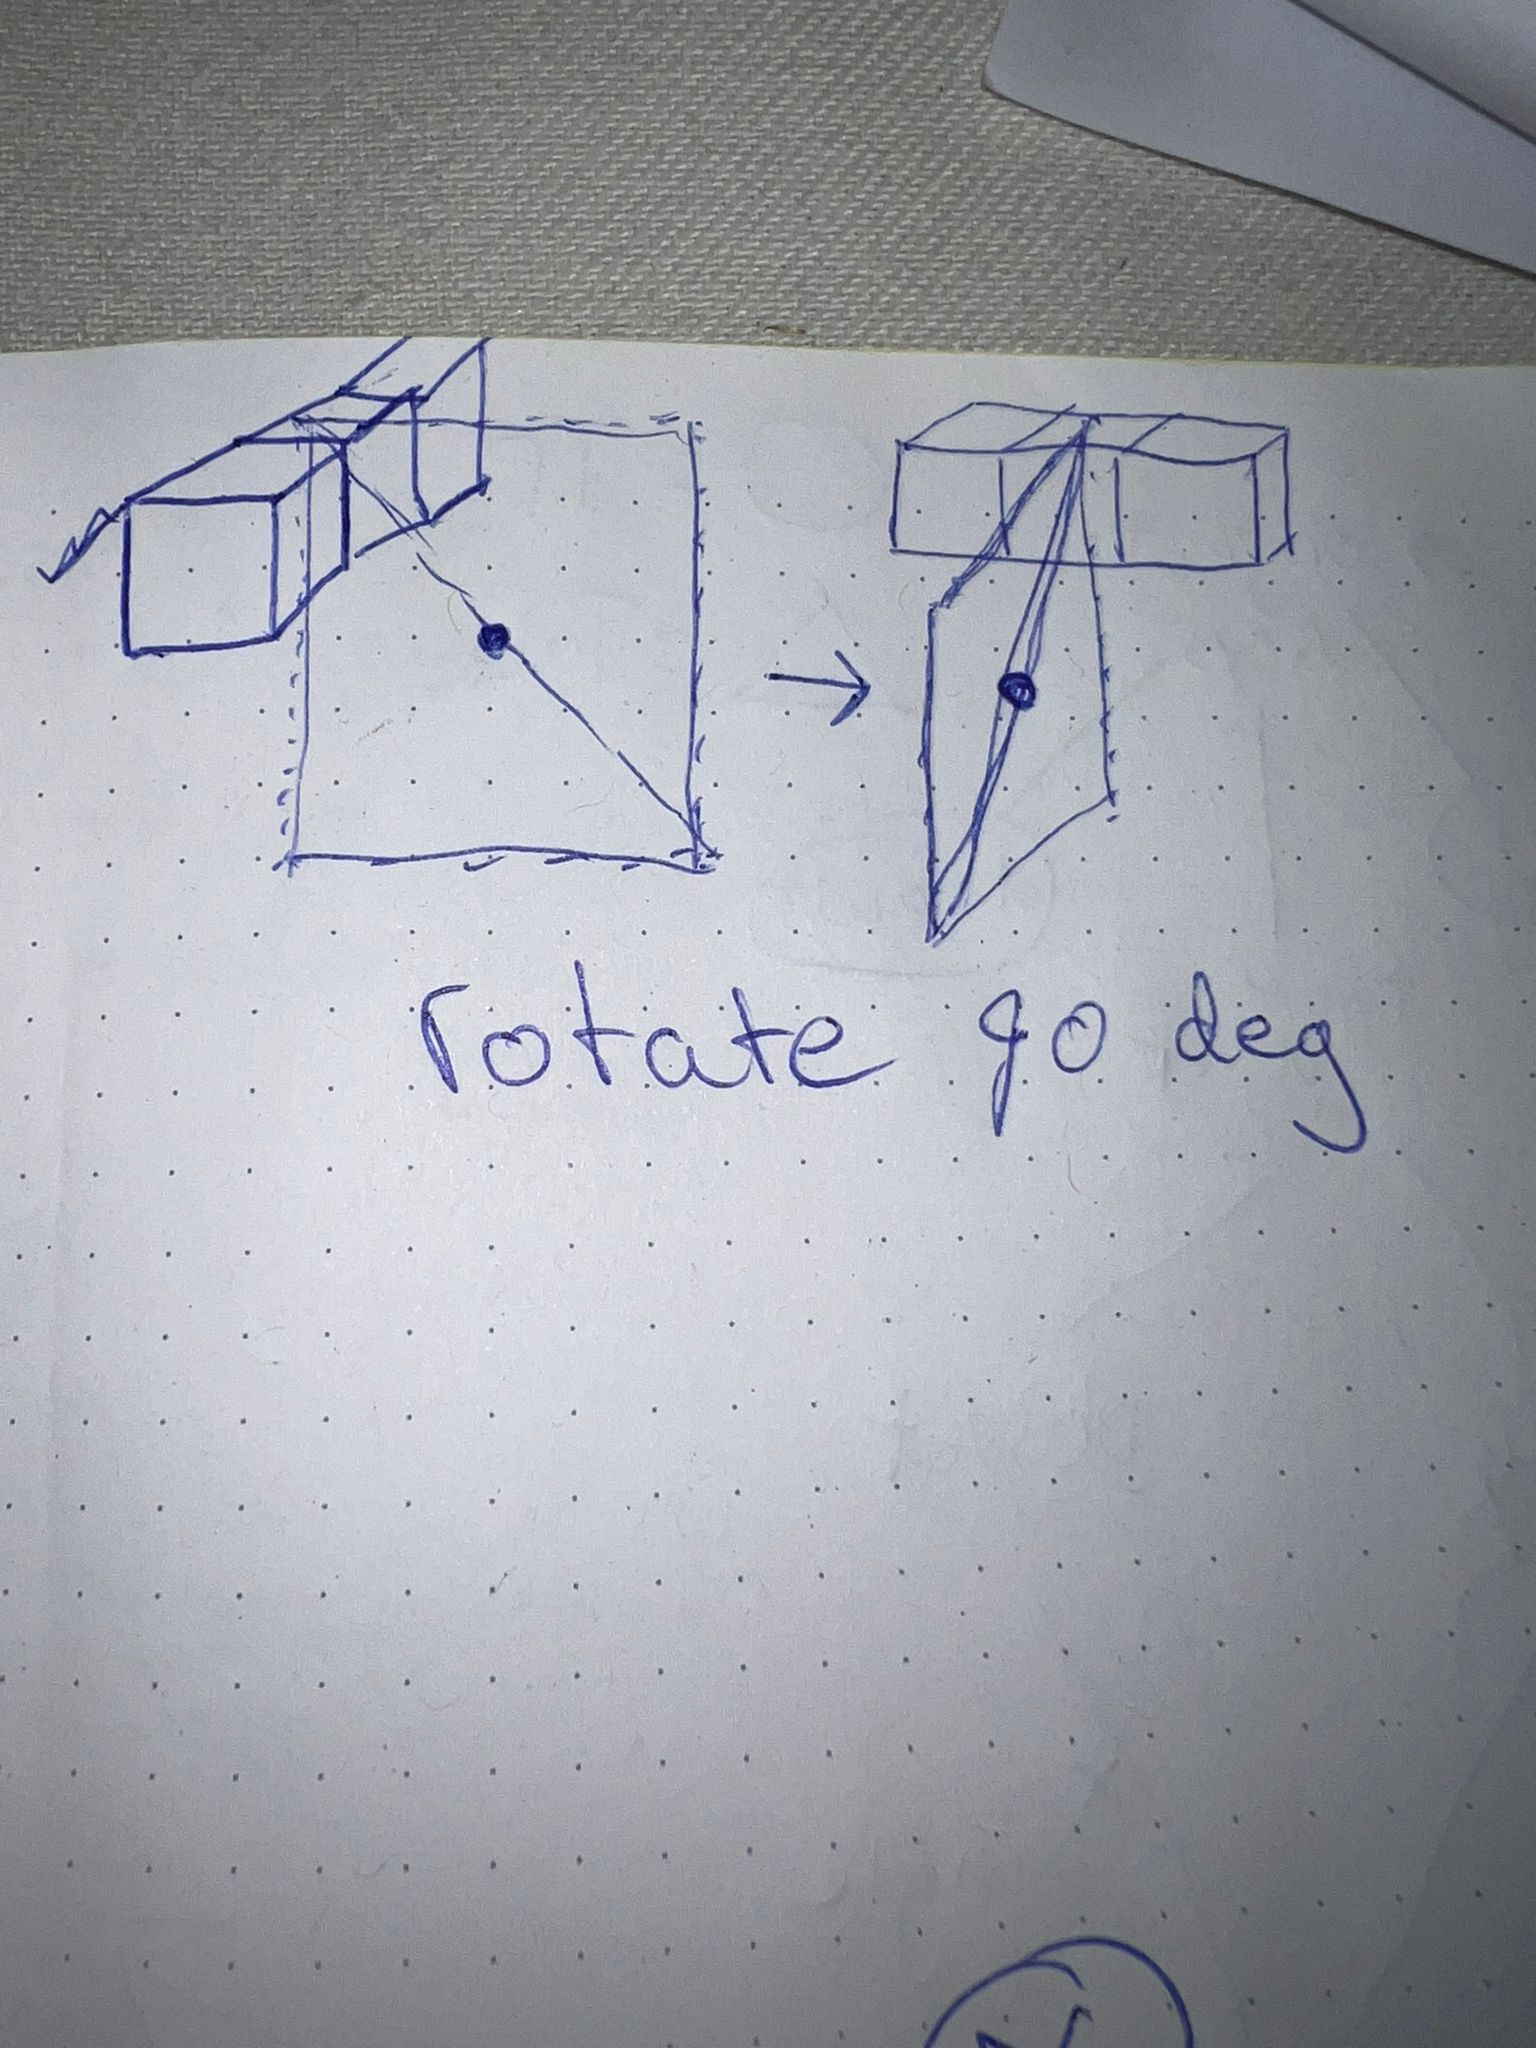 rotate 90 deg